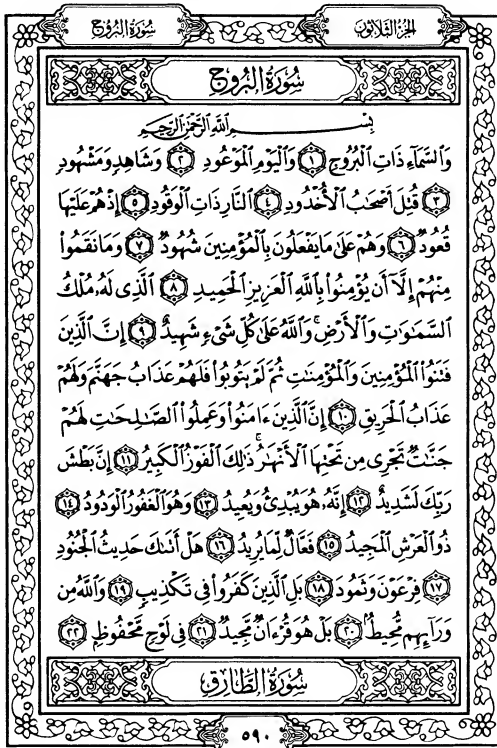 الجزء الثلاثون
سورة البروج
سُورَةُ الْبُرُوجِ
بِسْمِ اللَّهِ الرَّحْمَٰنِ الرَّحِيمِ
وَالسَّمَاءِ ذَاتِ الْبُرُوجِ ١ وَالْيَوْمِ الْمَوْعُودِ ٢ وَشَاهِدٍ وَمَشْهُودٍ
٣ قُتِلَ أَصْحَٰبُ الْأُخْدُودِ ٤ النَّارِ ذَاتِ الْوَقُودِ ٥ إِذْ هُمْ عَلَيْهَا
قُعُودٌ ٦ وَهُمْ عَلَىٰ مَا يَفْعَلُونَ بِالْمُؤْمِنِينَ شُهُودٌ ٧ وَمَا نَقَمُوا
مِنْهُمْ إِلَّا أَن يُؤْمِنُوا بِاللَّهِ الْعَزِيزِ الْحَمِيدِ ٨ الَّذِي لَهُۥ مُلْكُ
السَّمَٰوَٰتِ وَالْأَرْضِ ۚ وَاللَّهُ عَلَىٰ كُلِّ شَيْءٍ شَهِيدٌ ٩ إِنَّ الَّذِينَ
فَتَنُوا الْمُؤْمِنِينَ وَالْمُؤْمِنَٰتِ ثُمَّ لَمْ يَتُوبُوا فَلَهُمْ عَذَابُ جَهَنَّمَ وَلَهُمْ
عَذَابُ الْحَرِيقِ ١٠ إِنَّ الَّذِينَ ءَامَنُوا وَعَمِلُوا الصَّٰلِحَٰتِ لَهُمْ
جَنَّٰتٌ تَجْرِي مِن تَحْتِهَا الْأَنْهَٰرُ ۚ ذَٰلِكَ الْفَوْزُ الْكَبِيرُ ١١ إِنَّ بَطْشَ
رَبِّكَ لَشَدِيدٌ ١٢ إِنَّهُۥ هُوَ يُبْدِئُ وَيُعِيدُ ١٣ وَهُوَ الْغَفُورُ الْوَدُودُ ١٤
ذُو الْعَرْشِ الْمَجِيدُ ١٥ فَعَّالٌ لِّمَا يُرِيدُ ١٦ هَلْ أَتَىٰكَ حَدِيثُ الْجُنُودِ
١٧ فِرْعَوْنَ وَثَمُودَ ١٨ بَلِ الَّذِينَ كَفَرُوا فِي تَكْذِيبٍ ١٩ وَاللَّهُ مِن
وَرَائِهِم مُّحِيطٌ ٢٠ بَلْ هُوَ قُرْءَانٌ مَّجِيدٌ ٢١ فِي لَوْحٍ مَّحْفُوظٍ ٢٢
سُورَةُ الطَّارِقِ
٥٩٠